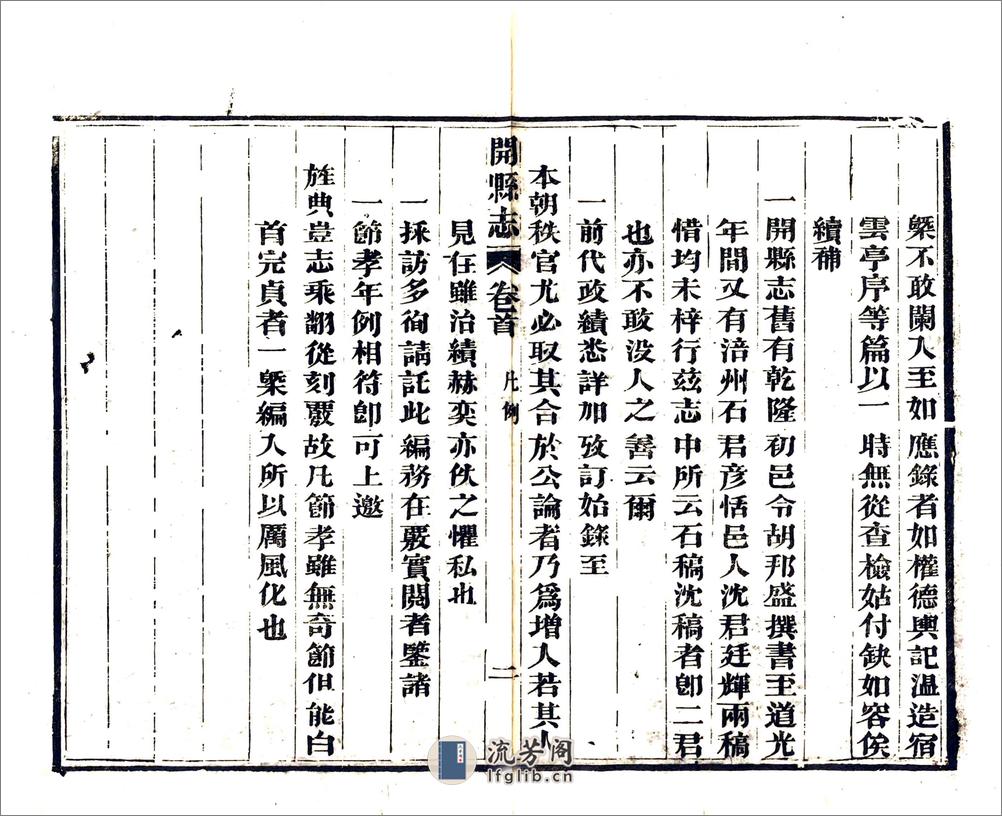 槩不敢闌入至如應錄者如權德輿記溫造宿
雲亭序等篇以一時無從查檢姑付缺如容俟
續補
一開縣志舊有乾隆初邑令胡邦盛撰書至道光
年間又有涪州石君彥恬邑人沈君廷輝兩稿
惜均未梓行兹志中所云石稿沈稿者卽二君
也亦不敢没人之善云爾
一前代政績悉詳加攷訂始錄至
本朝秩官尤必取其合於公論者乃爲增入若其人
開縣志 卷首 凡例 二
見在雖治績赫奕亦佚之懼私也
一採訪多徇請託此編務在覈實閱者鑒諸
一節孝年例相符卽可上邀
旌典豈志乘翻從刻覈故凡節孝雖無奇節但能白
首完貞者一槩編入所以厲風化也
流芳阁
lfglib.cn